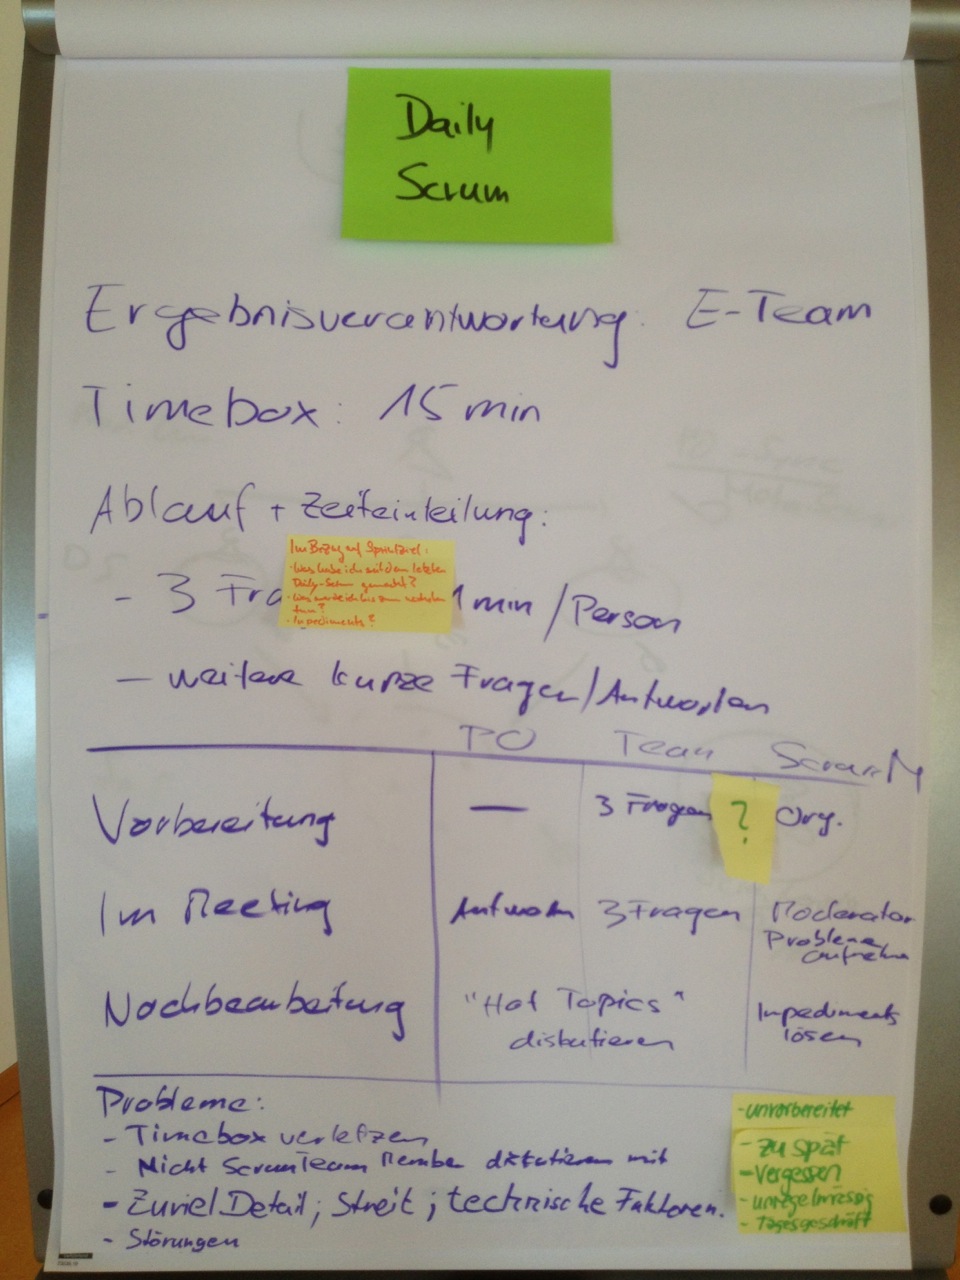 Daily
Scrum
Ergebnisverantwortung: E-Team
Timebox: 15 min
Ablauf + Zeiteinteilung:
Im Bezug auf Sprintziel:
- Was habe ich seit dem letzten
Daily-Scrum gemacht?
- Was werde ich bis zum nächsten
tun?
- Impediments?
- 3 Fra 1 min / Person
- weitere kurze Fragen/Antworten
PO Team ScrumM
Vorbereitung — 3 Fragen ? Org.
Im Meeting Antworten 3 Fragen Moderator
Probleme
aufnehmen
Nachbearbeitung "Hot Topics" Impediments
diskutieren lösen
Probleme:
- Timebox verletzen
- Nicht ScrumTeam Member diskutieren mit
- Zuviel Detail; Streit; technische Faktoren.
- Störungen
- unvorbereitet
- zu spät
- Vergessen
- unregelmässig
- Tagesgeschäft